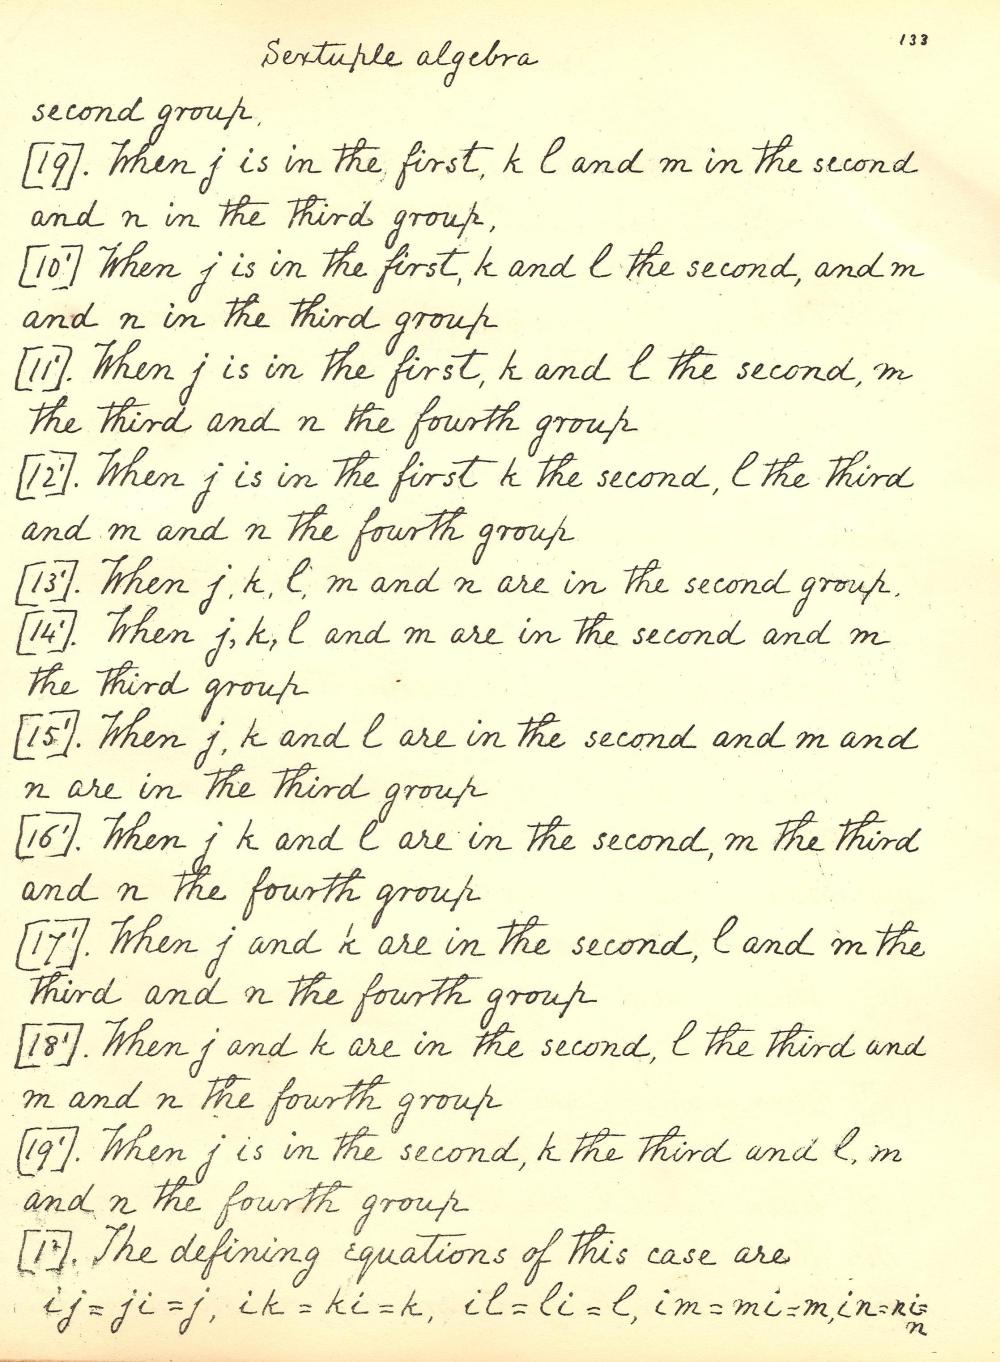 133
Sextuple algebra
second group.
[19]. When j is in the first, k l and m in the second
and n in the third group,
[10'] When j is in the first, k and l the second, and m
and n in the third group
[11']. When j is in the first, k and l the second, m
the third and n the fourth group
[12']. When j is in the first k the second, l the third
and m and n the fourth group
[13']. When j, k, l, m and n are in the second group.
[14']. When j, k, l and m are in the second and m
the third group
[15']. When j, k and l are in the second and m and
n are in the third group
[16']. When j k and l are in the second, m the third
and n the fourth group
[17']. When j and k are in the second, l and m the
third and n the fourth group
[18']. When j and k are in the second, l the third and
m and n the fourth group
[19']. When j is in the second, k the third and l, m
and n the fourth group
[1²]. The defining equations of this case are
ij = ji = j, ik = ki = k, il = li = l, im = mi = m, in = ni =
n